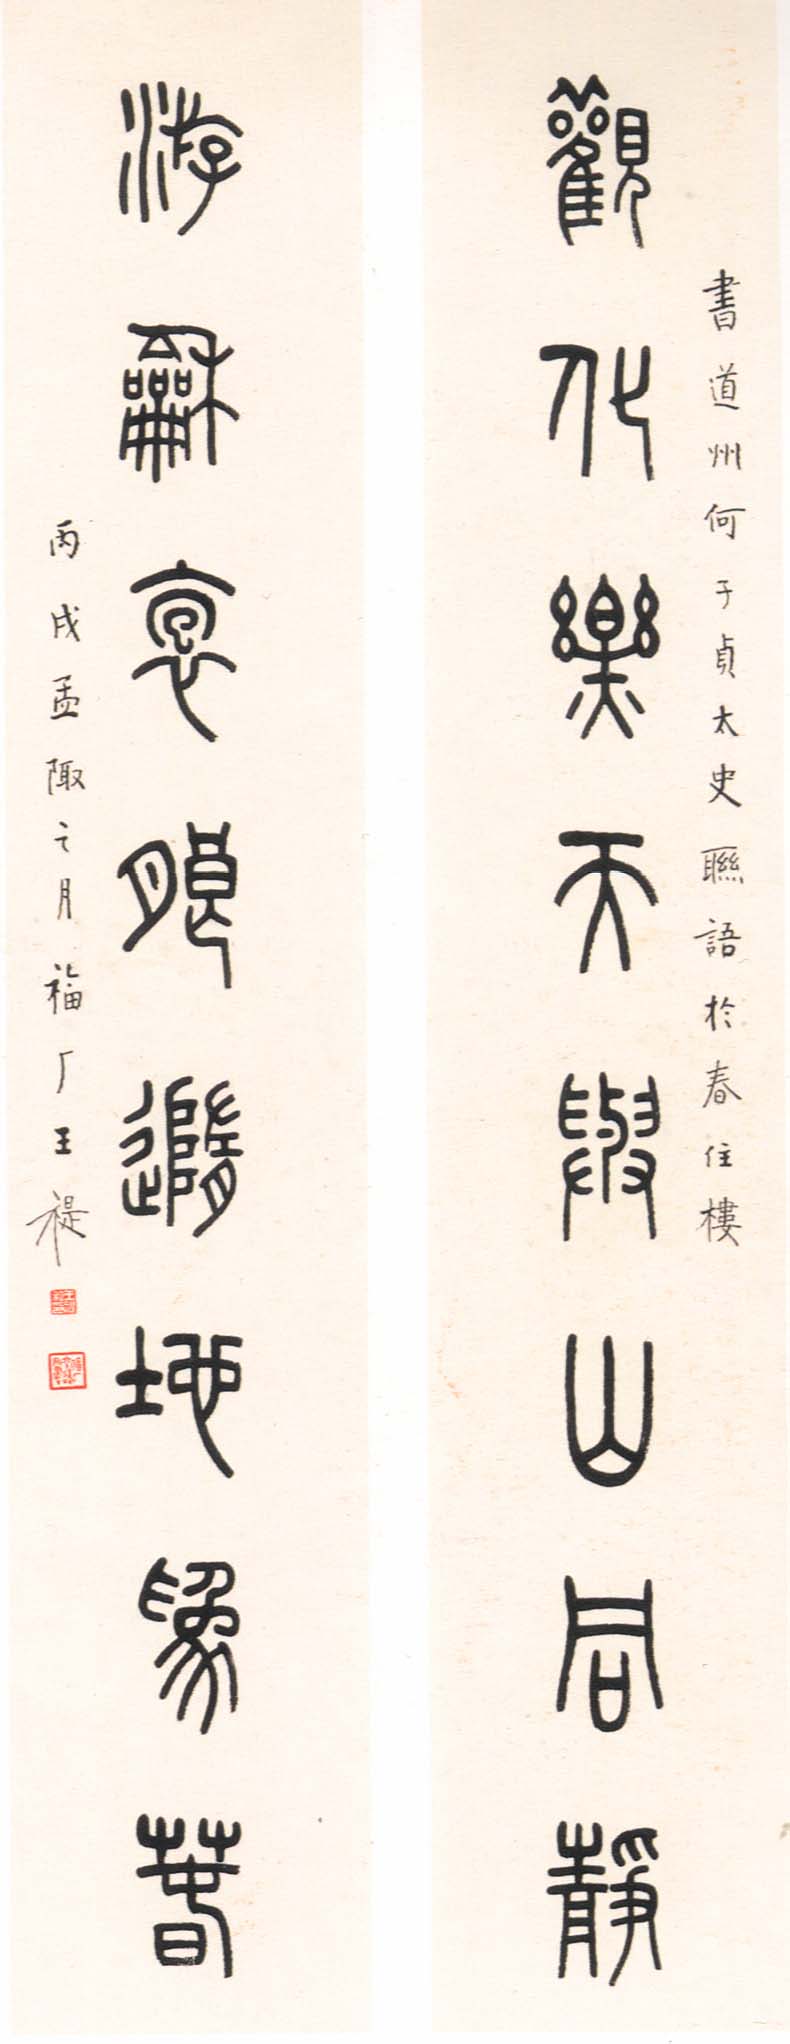 書道州何子貞太史聯語於春住樓
觀化樂天與山同靜
游龢褱朖隨地爲萅
丙戌孟陬之月福厂王禔